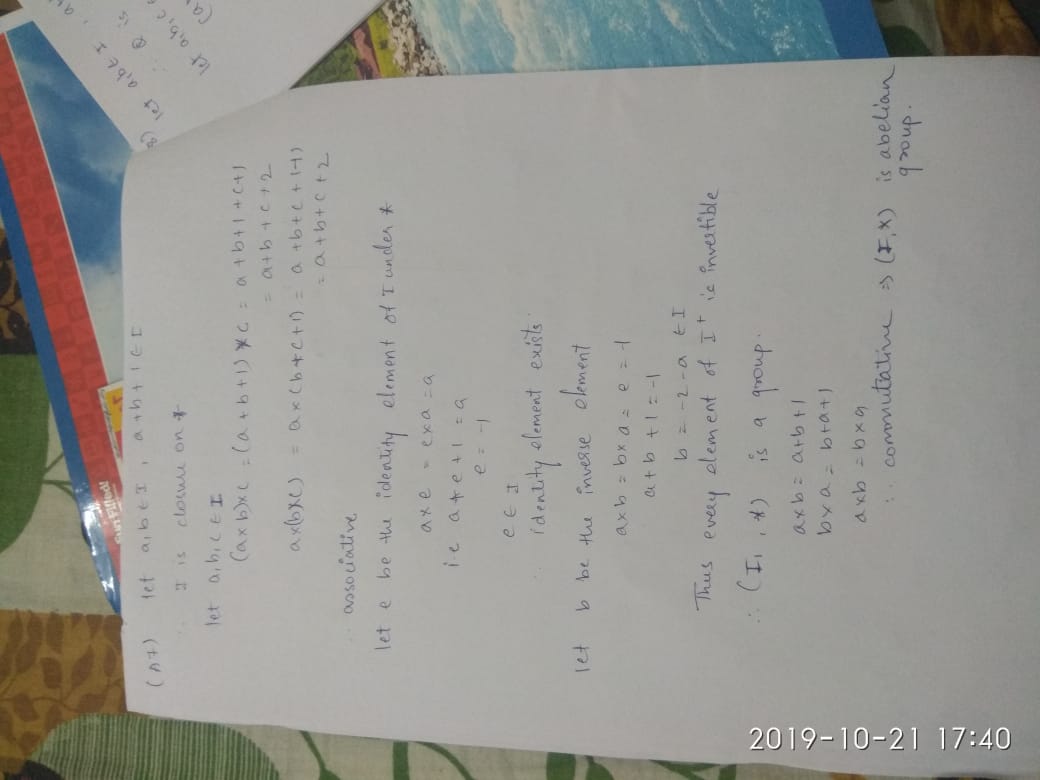 Fun Filled!
(A7) let a,b ∈ I , a+b+1 ∈ I
∴ I is closure on *
let a,b,c ∈ I
(a×b)×c = (a+b+1) * c = a+b+1+c+1
= a+b+c+2
a×(b×c) = a×(b+c+1) = a+b+c+1+1
= a+b+c+2
∴ associative
let e be the identity element of I under *
a×e = e×a = a
i.e a+e+1 = a
e = -1
e ∈ I
∴ identity element exists
let b be the inverse element
a×b = b×a = e = -1
a+b+1 = -1
b = -2-a ∈ I
Thus every element of I+ is invertible
∴ (I, , *) is a group.
a×b = a+b+1
b×a = b+a+1
a×b = b×a
∴ commutative ⇒ (I,×) is abelian
group.
8) let a,b ∈ I , a
∴ Q is
let a,b,c
(a
2019-10-21 17:40